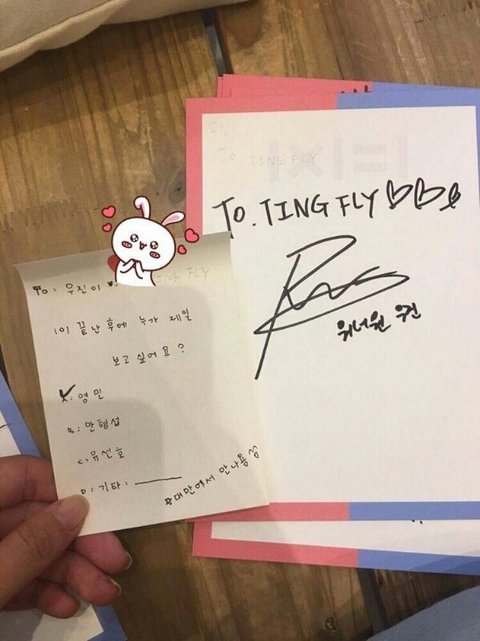 To. 우진이 ♥
101 끝난 후에 누가 제일
보고 싶어요?
✓A: 영민
B: 안형섭
C: 유선호
D: 기타: ______
☆대만에서 만나용
TO TING FLY
TO. TING FLY ♡♡
워너원 우진